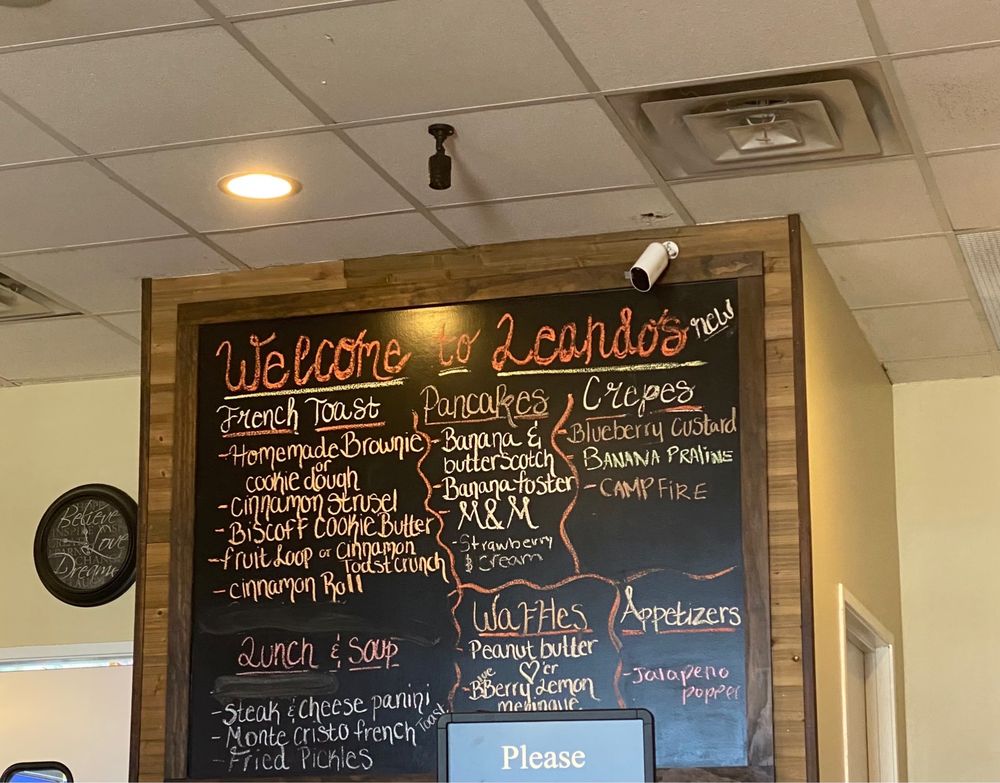 Welcome to Leando's new
French Toast
- Homemade Brownie
or
cookie dough
- cinnamon strusel
- Biscoff Cookie Butter
- fruit Loop or cinnamon
Toast crunch
- cinnamon Roll
Pancakes
- Banana &
butterscotch
- Banana foster
M&M
- Strawberry
& Cream
Crepes
- Blueberry Custard
- BANANA PRALINE
- CAMPFIRE
Lunch & Soup
- Steak & Cheese panini
- Monte Cristo french Toast
- Fried Pickles
Waffles
Peanut butter
♡'er
Berry Lemon
meringue
Appetizers
- Jalapeno
popper
Believe
Love
Dream
Please